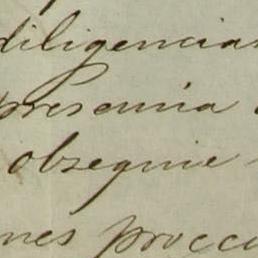 diligencias
presencia
obsequie
nes procca